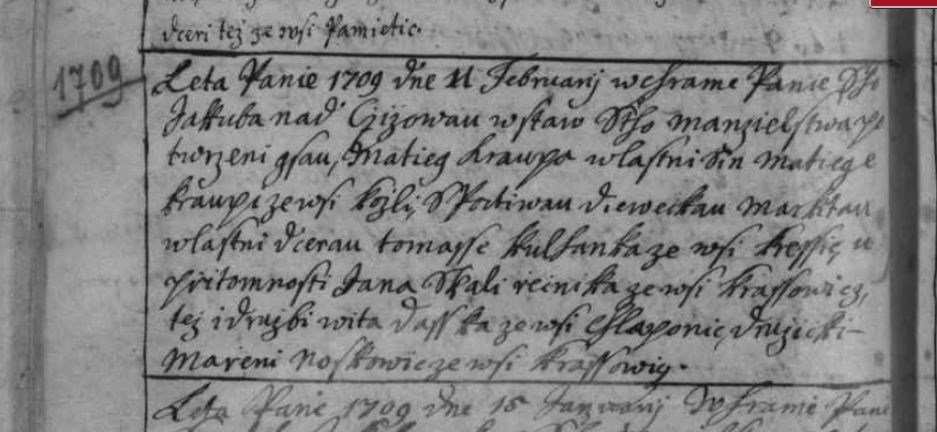 dceri tež ze wsi Pamietic.
1709
Leta Panie 1709 dne 11 Februarij w chrame Panie Sho
Jakuba nad Gizowau w staw Stho manzielstwa po
twrzeni gsau, Matieg Kraupa wlastni Sin Matiege
Kraupi ze wsi Kozli, S Poctiwau dieweckau Marktau
wlastni dcerau tomasse Kulhanka ze wsi u
přitomnosti Jana Skali rečnika ze wsi Krassowicz,
tež i družbi wita Dasska ze wsi Chlaponic, družicki
Mareni Noskowic ze wsi Krassowic.
Leta Panie 1709 dne 15 Januarij W chramie Panie